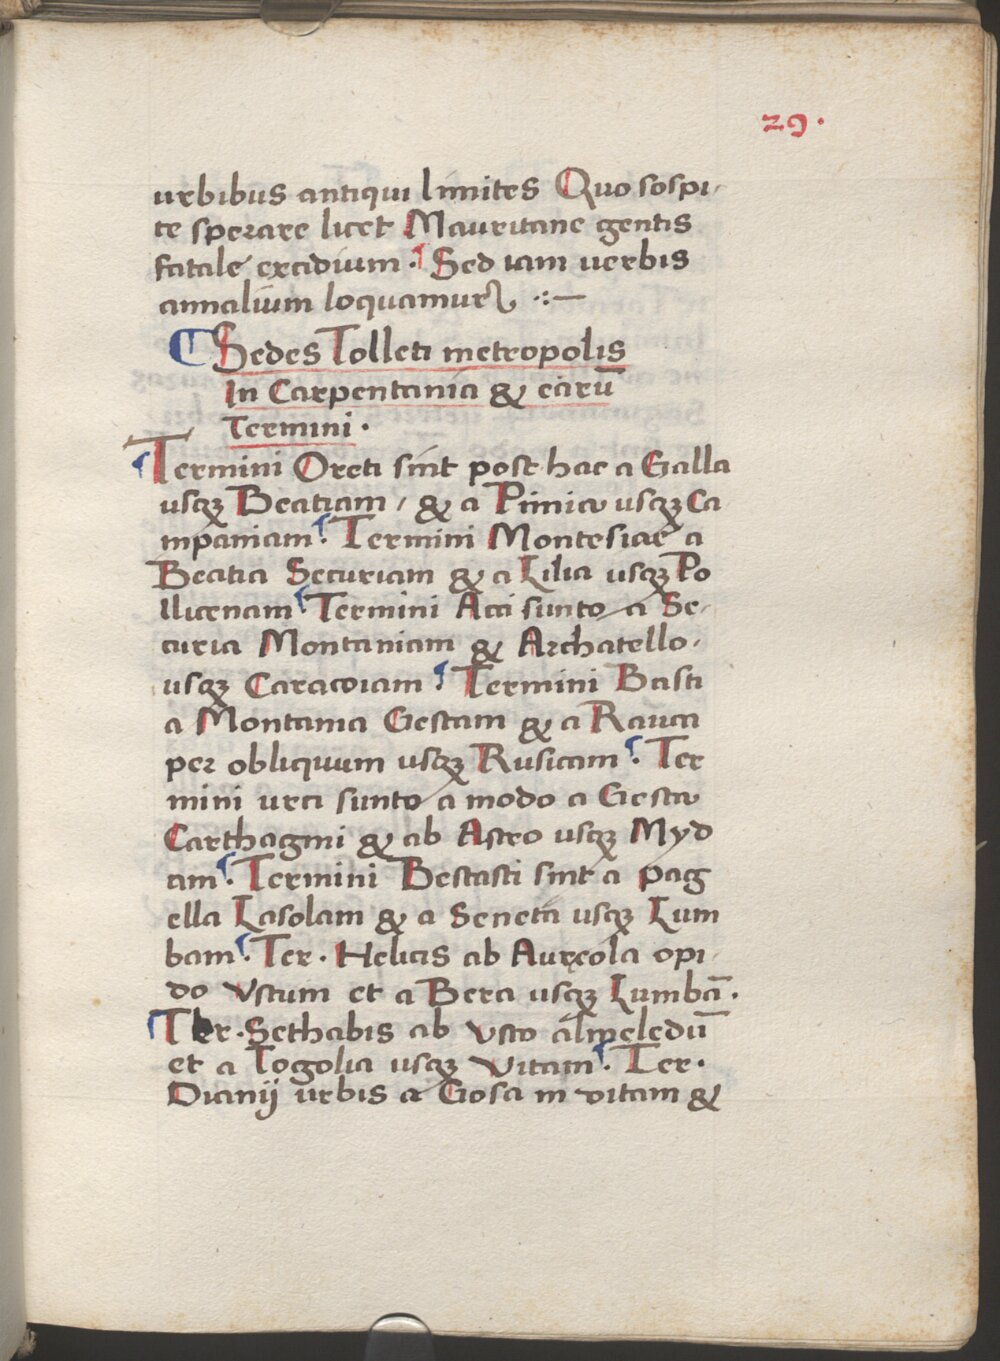 29.
urbibus antiqui limites Quo sospi
te sperare licet Mauritane gentis
fatale excidium. Sed iam uerbis
annalium loquamur
Sedes Tolleti metropolis
In Carpentania & earū
Termini.
Termini Oreti sint post hac a Galla
usqꝫ Beatiam / & a Pinnica usqꝫ Ca
mpaniam. Termini Montesiae a
Beatia Securiam & a Lilia usqꝫ Po
llicenam Termini Acci sunto a Se
curia Montaniam & Archatello
usqꝫ Caracoiam. Termini Basti
a Montania Gestam & a Rauca
per obliquum usqꝫ Rusicam. Ter
mini urci sunto a modo a Gesta
Carthagini & ab Astro usqꝫ Myd
am. Termini Bestasti sint a pag
ella Lasolam & a Seneta usqꝫ Lum
bam. Ter. Helicis ab Aureola opi
do Vstum et a Bera usqꝫ Lumbā.
Ter. Sethabis ab Vsto almeledū
et a Togolia usqꝫ Vitam. Ter.
Dianij urbis a Gosa in vitam &